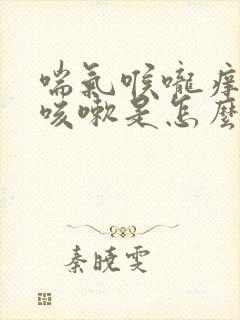 喘氣喉嚨癢
咳嗽是怎麼
秦曉雯